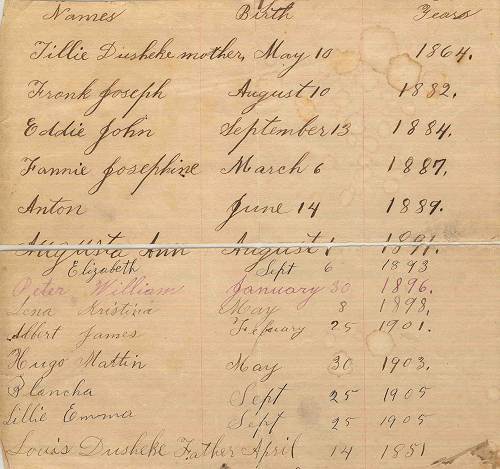 Names Birth Years
Tillie Dusheke mother, May 10 1864.
Frank Joseph August 10 1882.
Eddie John September 13 1884.
Fannie Josephine March 6 1887.
Anton June 14 1889.
Augusta Ann August 1 1891.
Elizabeth Sept 6 1893
Peter William January 30 1896.
Lena Kristina May 8 1898,
Albert James Febuary 25 1901.
Hugo Martin May 30 1903.
Blancha Sept 25 1905
Lillie Emma Sept 25 1905
Louis Dusheke Father April 14 1851